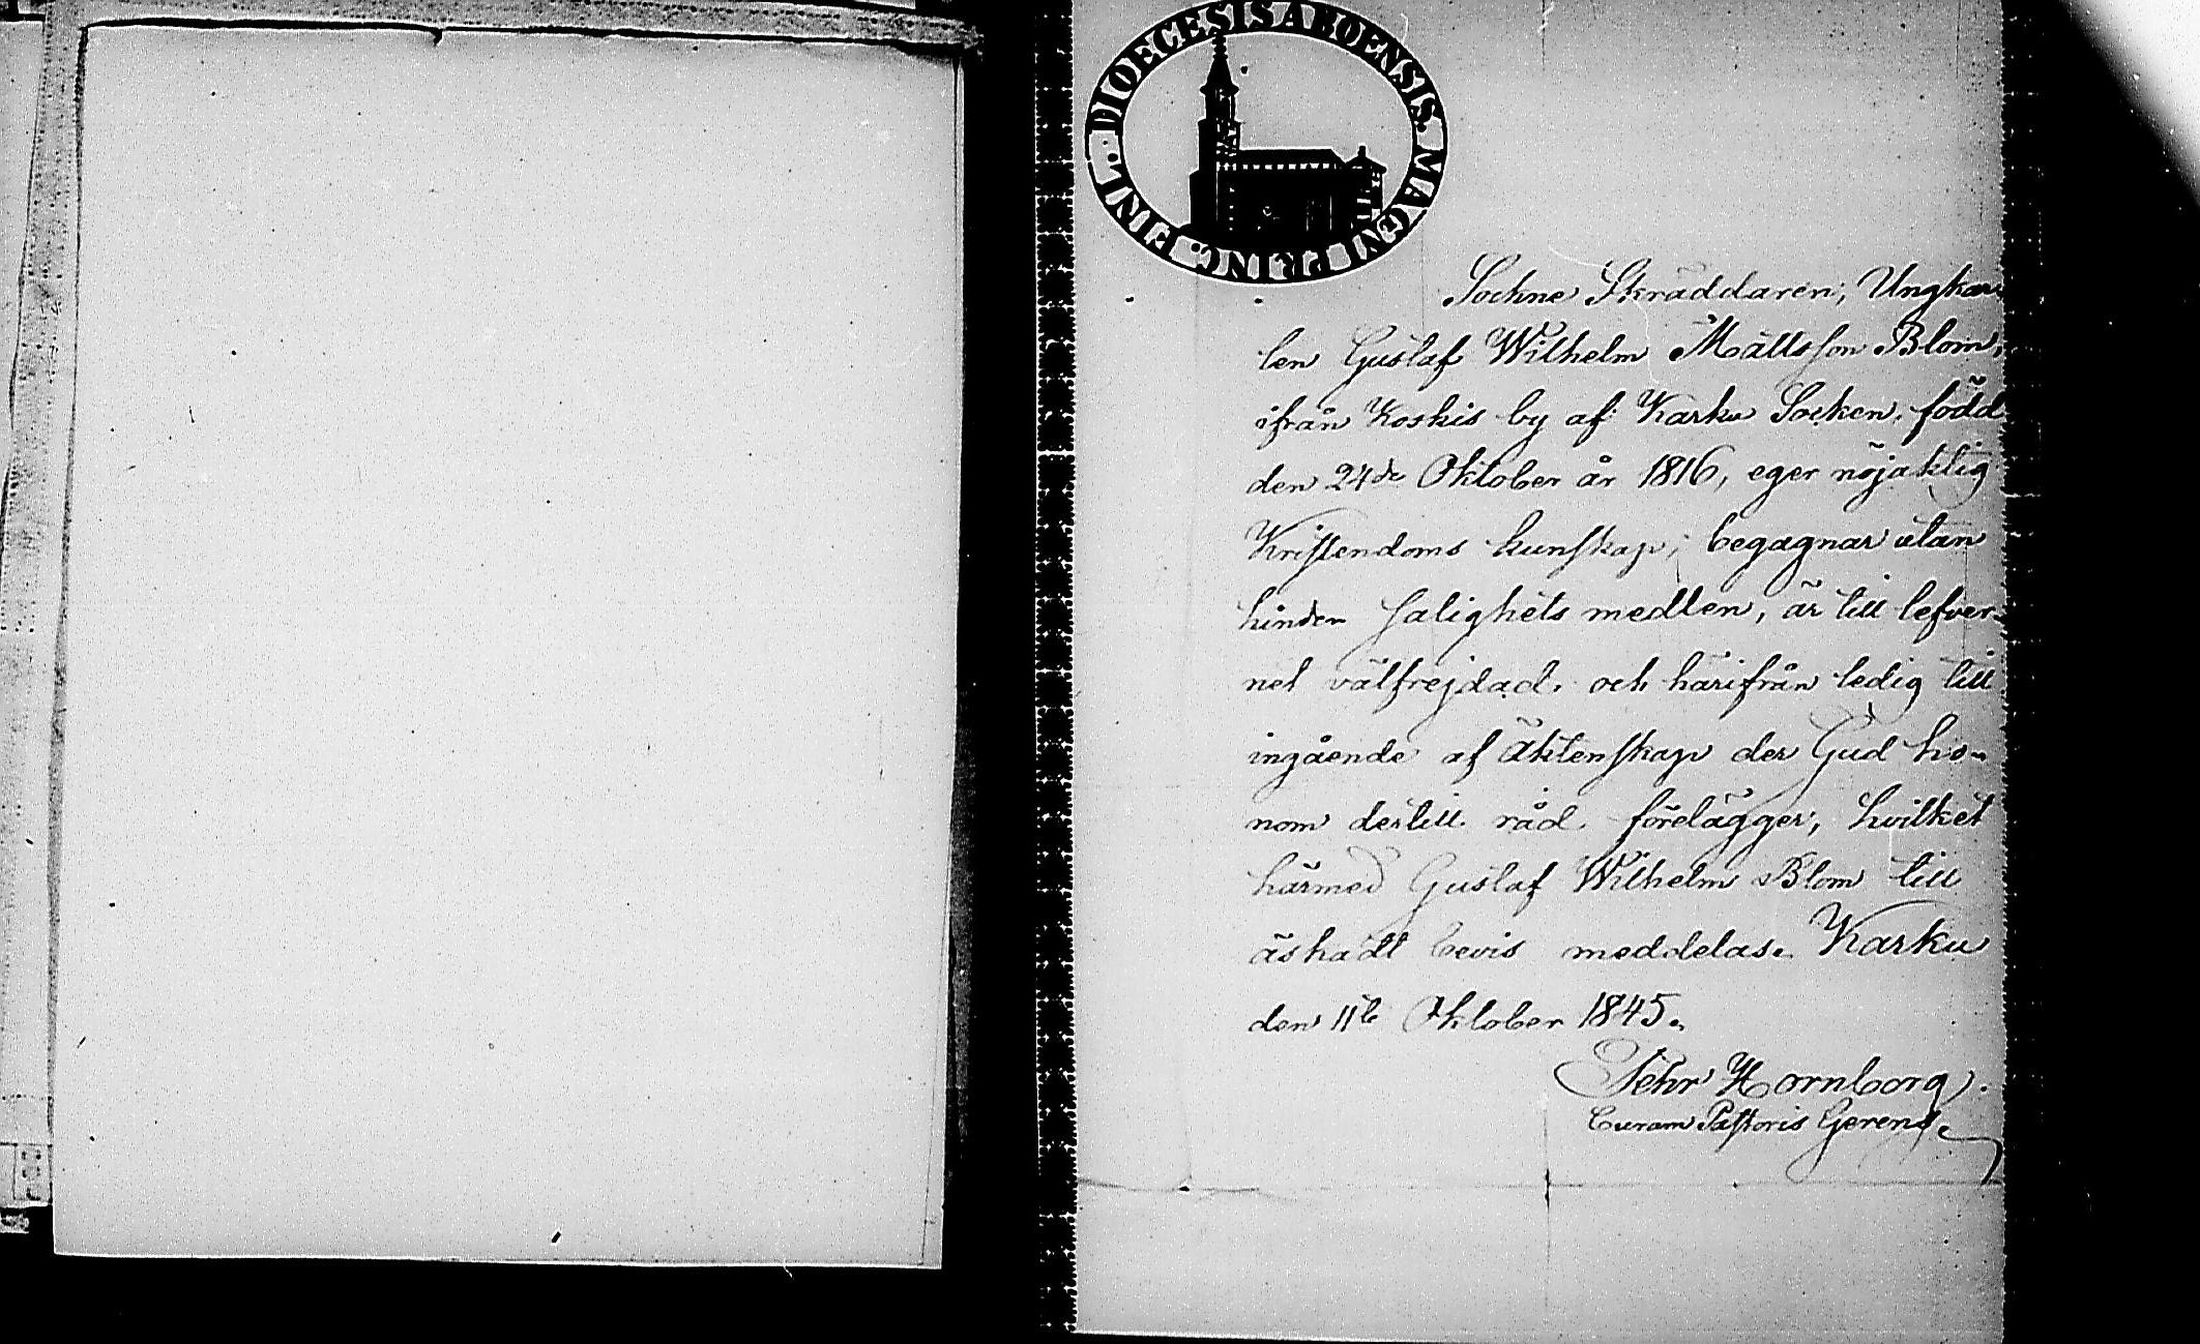 DIOECESIS ABOENSIS. MAGNI PRINC. FINL.
Sockne Skräddaren, Ungkar
len Gustaf Wilhelm Mattsson Blom,
ifrån Koskis by af Karku Socken, född
den 24de Oktober år 1816, eger nöjaktig
Kristendoms kunskap, begagnar utan
hinder salighets medlen, är till lefver-
net välfrejdad, och härifrån ledig till
ingående af äktenskap der Gud ho-
nom dertill råd förelägger, hvilket
härmed Gustaf Wilhelm Blom till
äskadt bevis meddelas. Karku
den 11te Oktober 1845.
Pehr Hornborg.
Curam Pastoris Gerens.